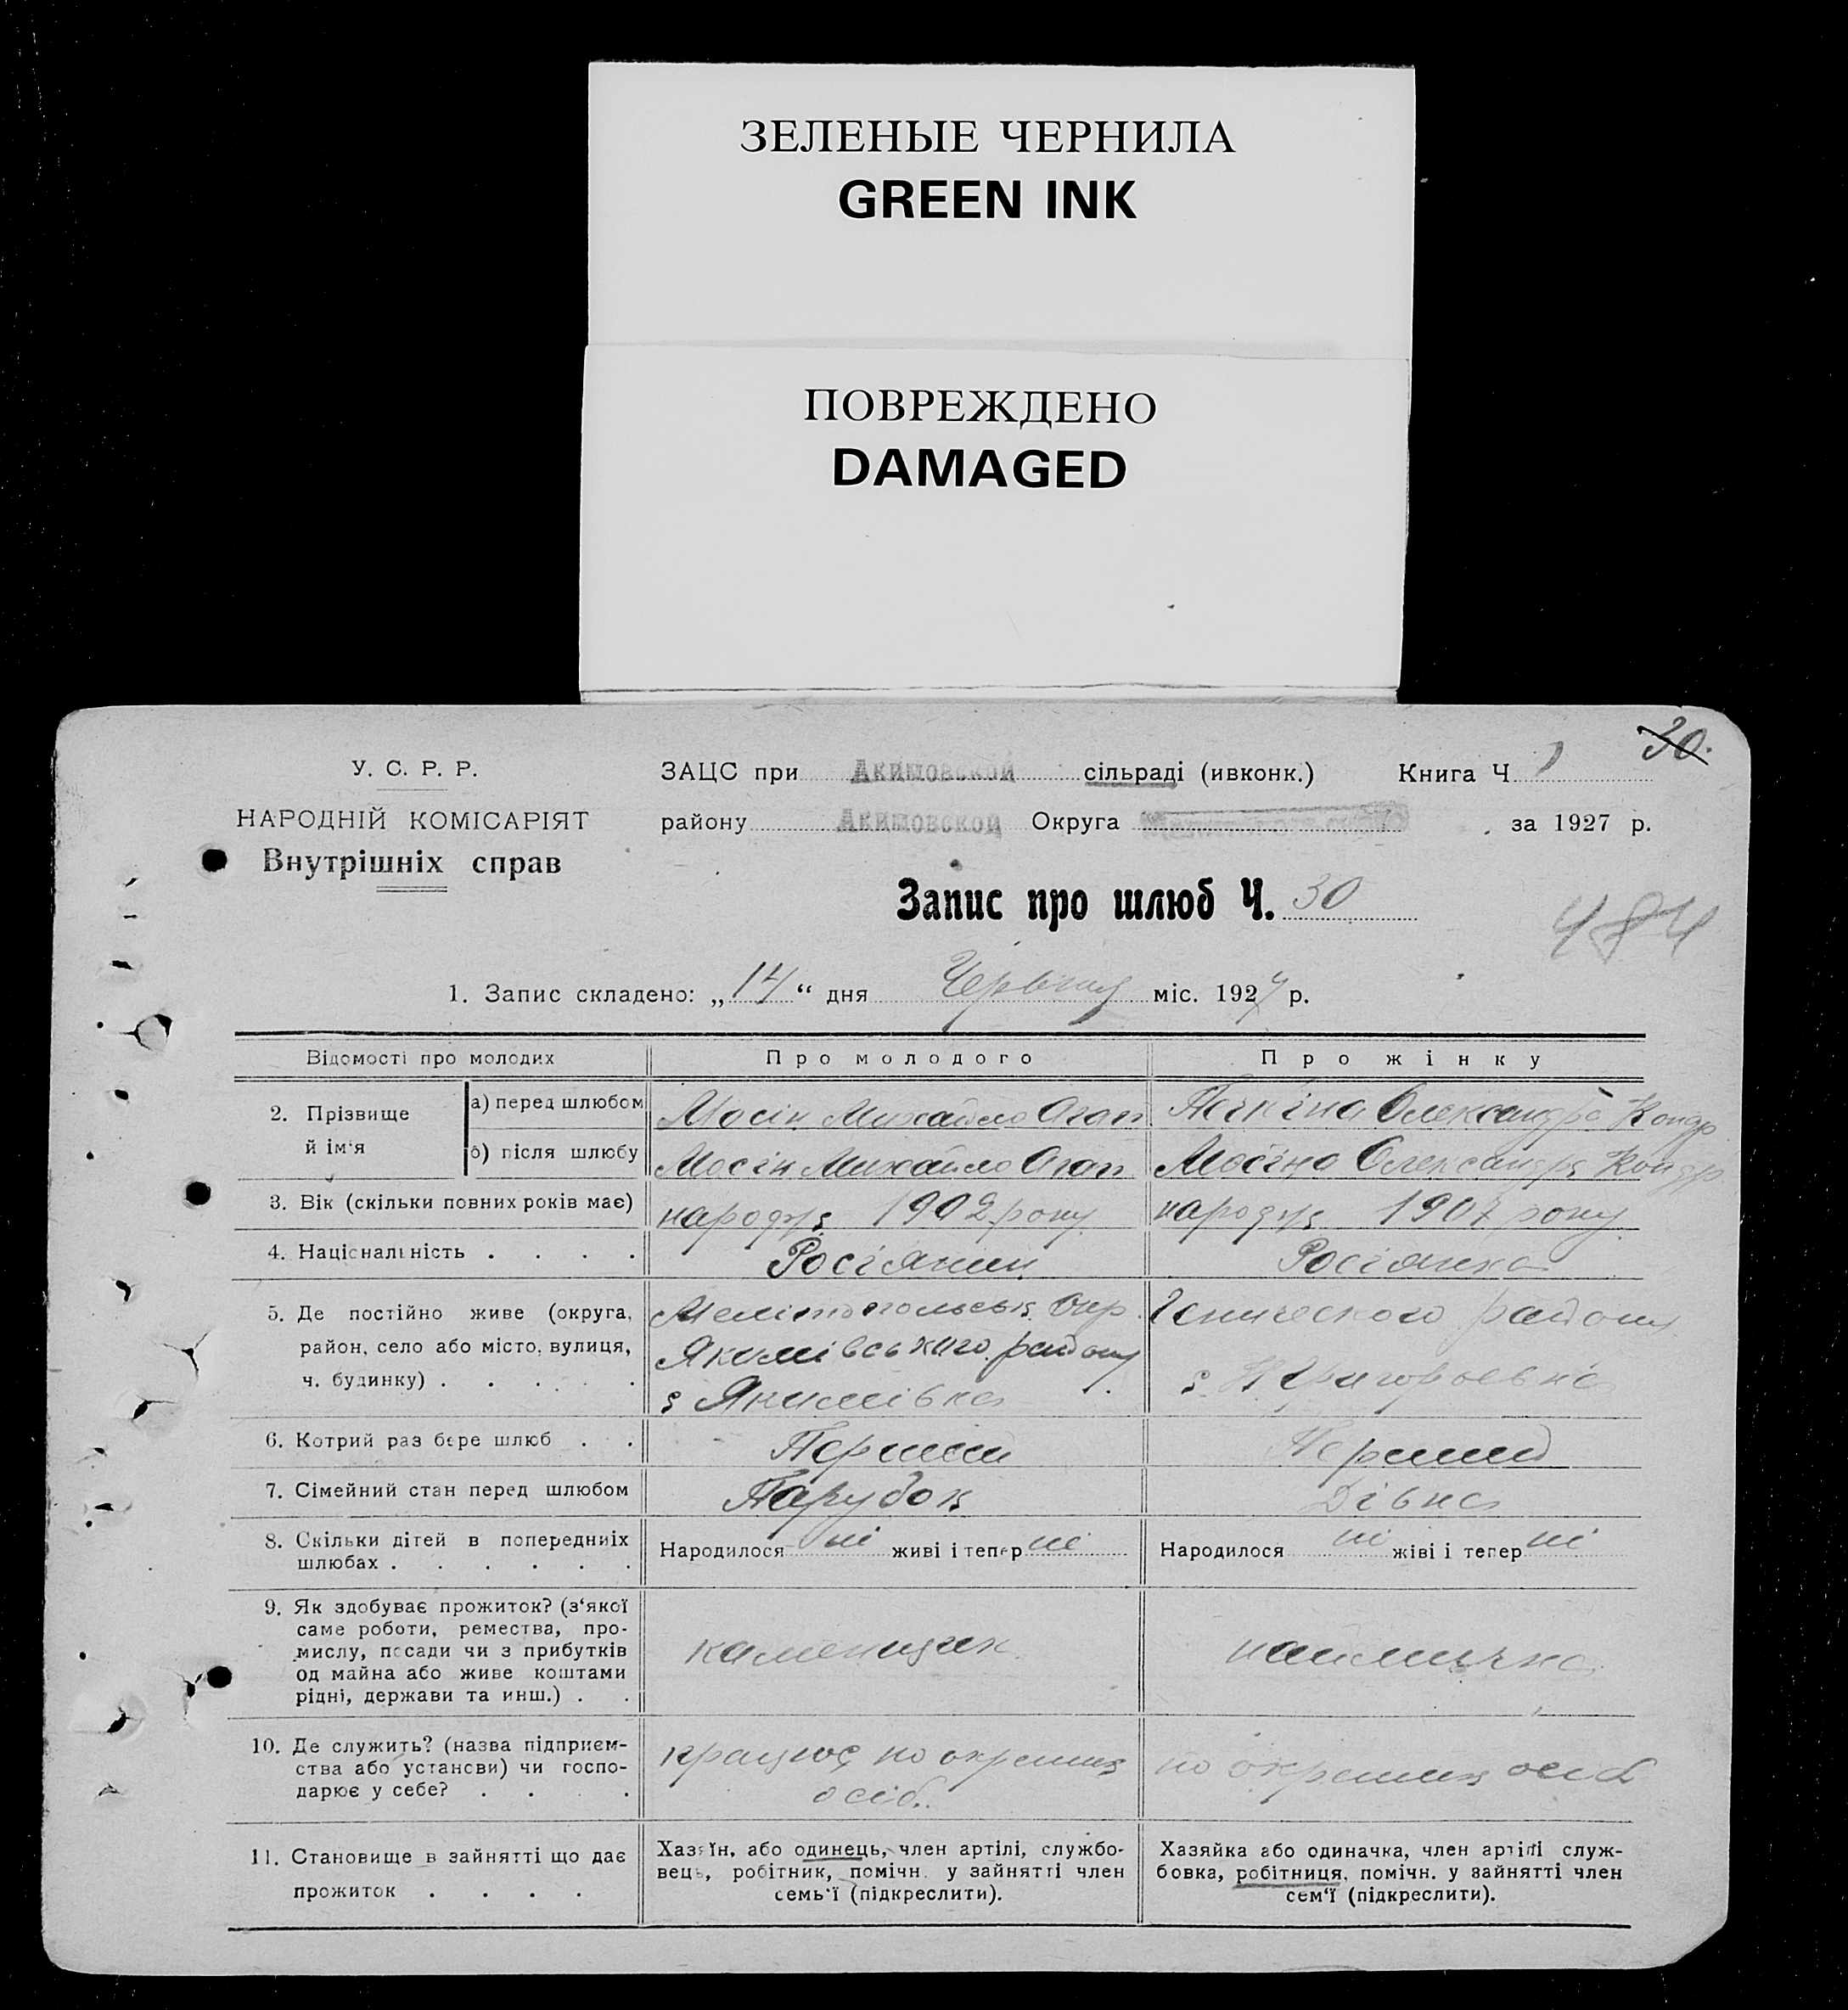 ЗЕЛЕНЫЕ ЧЕРНИЛА
GREEN INK
ПОВРЕЖДЕНО
DAMAGED
30.
У. С. Р. Р.
НАРОДНІЙ КОМІСАРІЯТ
Внутрішніх справ
ЗАЦС при Акимовской сільраді (ивконк.) Книга Ч 1
району Акимовской Округа за 1927 р.
Запис про шлюб Ч. 30
484
1. Запис складено: „14“ дня Червня міс. 1927 р.
Відомості про молодих Про молодого Про жінку
2. Прізвище й ім'я
а) перед шлюбом Мосін Михайло Агап Олександра Кондр
б) після шлюбу Мосін Михайло Агап Мосіна Олександра Кондр
3. Вік (скільки повних років має) народж 1902 року народж 1907 року
4. Національність . . . . Росіянин Росіянка
5. Де постійно живе (округа, район, село або місто, вулиця, ч. будинку) . . . . .
Мелітопольськ Окр.
Якимівського району
с Якимівка
Генического району
с.
6. Котрий раз бере шлюб . . Перший Перший
7. Сімейний стан перед шлюбом Парубок Дівка
8. Скільки дітей в попередниіх шлюбах . . . . . .
Народилося ні живі і тепер ні
Народилося ні жіві і тепер ні
9. Як здобуває прожиток? (з‘якої саме роботи, ремества, промислу, посади чи з прибутків од майна або живе коштами рідні, держави та инш.) . .
каменщик
наймичка
10. Де служить? (назва підприємства або установи) чи господарює у себе? . . . .
працює по окремих
осіб.
по окремих осіб
11. Становище в зайнятті що дає прожиток . . . .
Хазяїн, або одинець, член артілі, службовець, робітник, помічн. у зайнятті член семь‘ї (підкреслити).
Хазяйка або одиначка, член артілі службовка, робітниця, помічн. у зайнятті член сем‘ї (підкреслити).